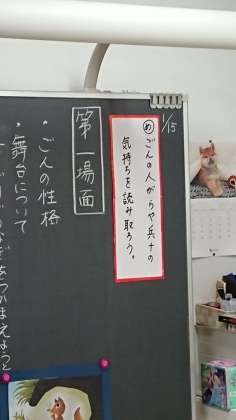 1/15
め ごんの人がらや兵十の
気持ちを読み取ろう。
第一場面
・ごんの性格
・舞台について
をつかまえようと